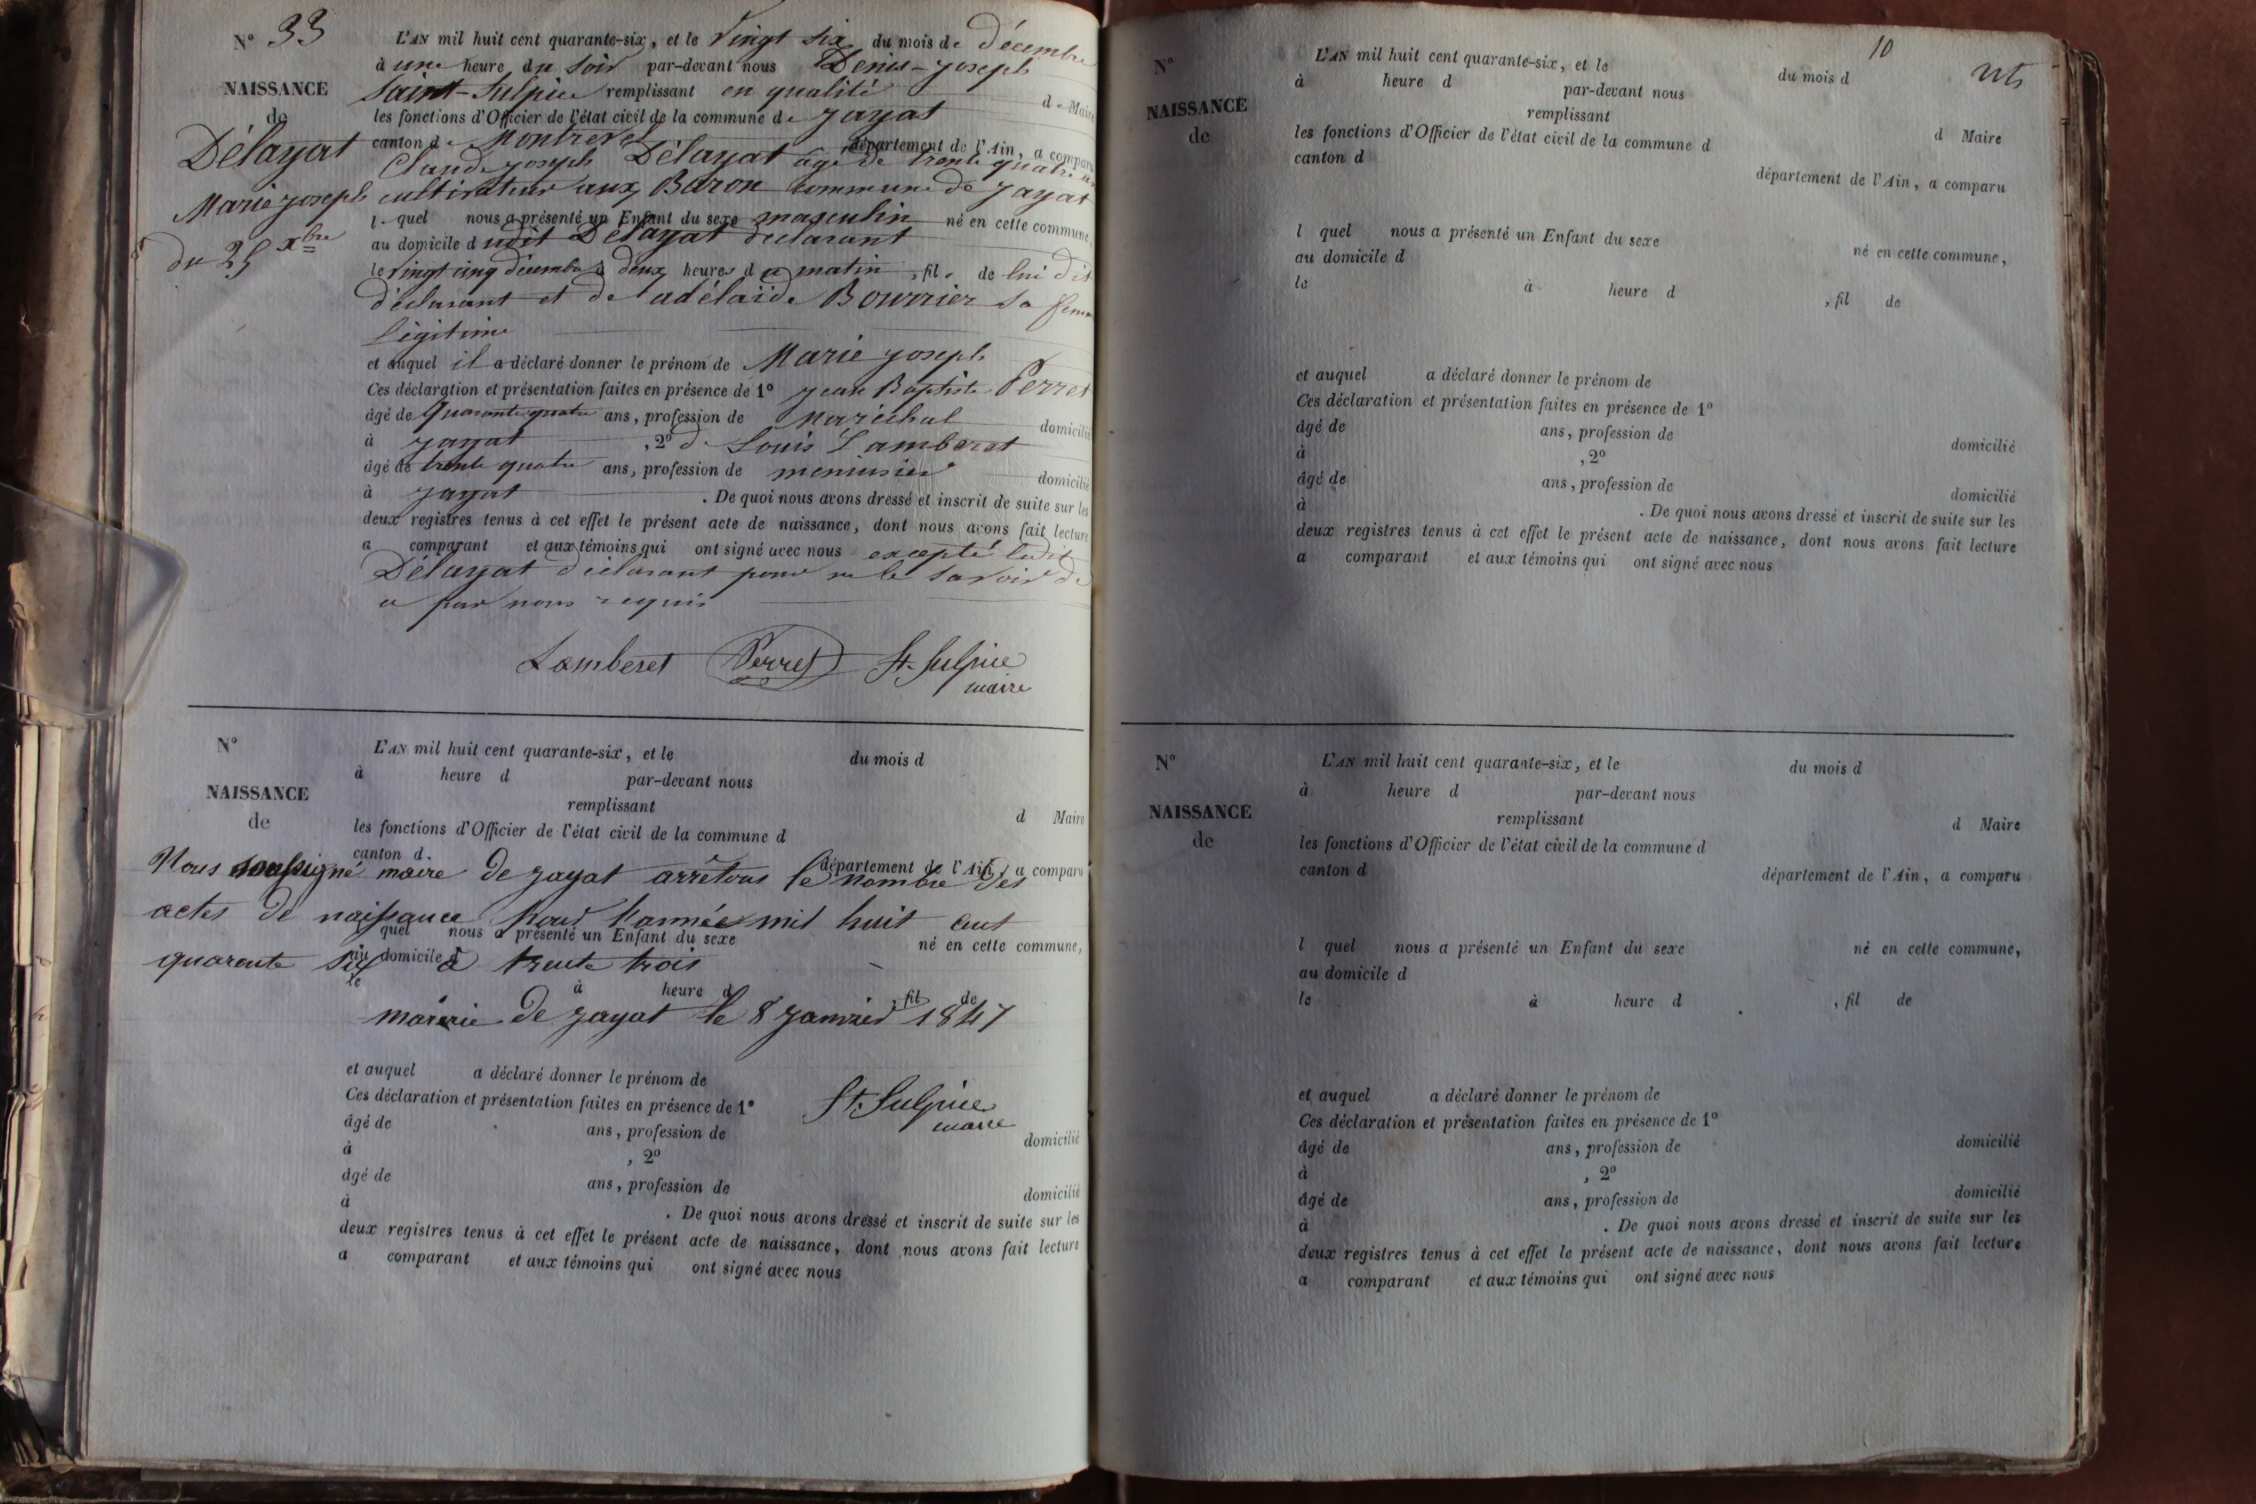 N° 33
NAISSANCE
de
Délayat
Marie joseph
du 25 xbre
L'AN mil huit cent quarante-six, et le vingt six du mois de décembre
à une heure du soir par-devant nous Denis-joseph
Saint-Sulpice remplissant en qualité de Maire
les fonctions d'Officier de l'état civil de la commune de jayat
canton de Montrevel département de l'Ain, a comparu
Claude joseph Délayat âgé de trente quatre ans
cultivateur aux Baron commune de jayat
lequel nous a présenté un Enfant du sexe masculin né en cette commune,
au domicile dudit Délayat déclarant
le vingt cinq décembre à deux heures du matin, fils de lui dit
déclarant et de adélaïde Bourrier sa femme
légitime
et auquel il a déclaré donner le prénom de Marie joseph
Ces déclaration et présentation faites en présence de 1° jean Baptiste Perret
âgé de quarante quatre ans, profession de Maréchal domicilié
à jayat, 2° de Louis Lamberet
âgé de trente quatre ans, profession de menuisier domicilié
à jayat. De quoi nous avons dressé et inscrit de suite sur les
deux registres tenus à cet effet le présent acte de naissance, dont nous avons fait lecture
a comparant et aux témoins qui ont signé avec nous excepté ledit
Délayat déclarant pour ne le savoir de
ce par nous requis
Lamberet Perret St. Sulpice
maire
N°
NAISSANCE
de
L'AN mil huit cent quarante-six, et le du mois d
à heure d par-devant nous
remplissant d Maire
les fonctions d'Officier de l'état civil de la commune d
canton d département de l'Ain, a comparu
Nous soussigné maire de jayat arrêtons le nombre des
actes de naissance pour l'année mil huit cent
quel nous a présenté un Enfant du sexe né en cette commune,
quarante six à trente trois
au domicile d
le à heure d , fil de
mairie de jayat le 8 janvier 1847
et auquel a déclaré donner le prénom de
Ces déclaration et présentation faites en présence de 1°
St. Sulpice
maire
âgé de ans, profession de domicilié
à , 2°
âgé de ans, profession de domicilié
à . De quoi nous avons dressé et inscrit de suite sur les
deux registres tenus à cet effet le présent acte de naissance, dont nous avons fait lecture
a comparant et aux témoins qui ont signé avec nous
10
N°
NAISSANCE
de
L'AN mil huit cent quarante-six, et le du mois d
à heure d par-devant nous
remplissant d Maire
les fonctions d'Officier de l'état civil de la commune d
canton d département de l'Ain, a comparu
l quel nous a présenté un Enfant du sexe né en cette commune,
au domicile d
le à heure d , fil de
et auquel a déclaré donner le prénom de
Ces déclaration et présentation faites en présence de 1°
âgé de ans, profession de domicilié
à , 2°
âgé de ans, profession de domicilié
à . De quoi nous avons dressé et inscrit de suite sur les
deux registres tenus à cet effet le présent acte de naissance, dont nous avons fait lecture
a comparant et aux témoins qui ont signé avec nous
N°
NAISSANCE
de
L'AN mil huit cent quarante-six, et le du mois d
à heure d par-devant nous
remplissant d Maire
les fonctions d'Officier de l'état civil de la commune d
canton d département de l'Ain, a comparu
l quel nous a présenté un Enfant du sexe né en cette commune,
au domicile d
le à heure d , fil de
et auquel a déclaré donner le prénom de
Ces déclaration et présentation faites en présence de 1°
âgé de ans, profession de domicilié
à , 2°
âgé de ans, profession de domicilié
à . De quoi nous avons dressé et inscrit de suite sur les
deux registres tenus à cet effet le présent acte de naissance, dont nous avons fait lecture
a comparant et aux témoins qui ont signé avec nous